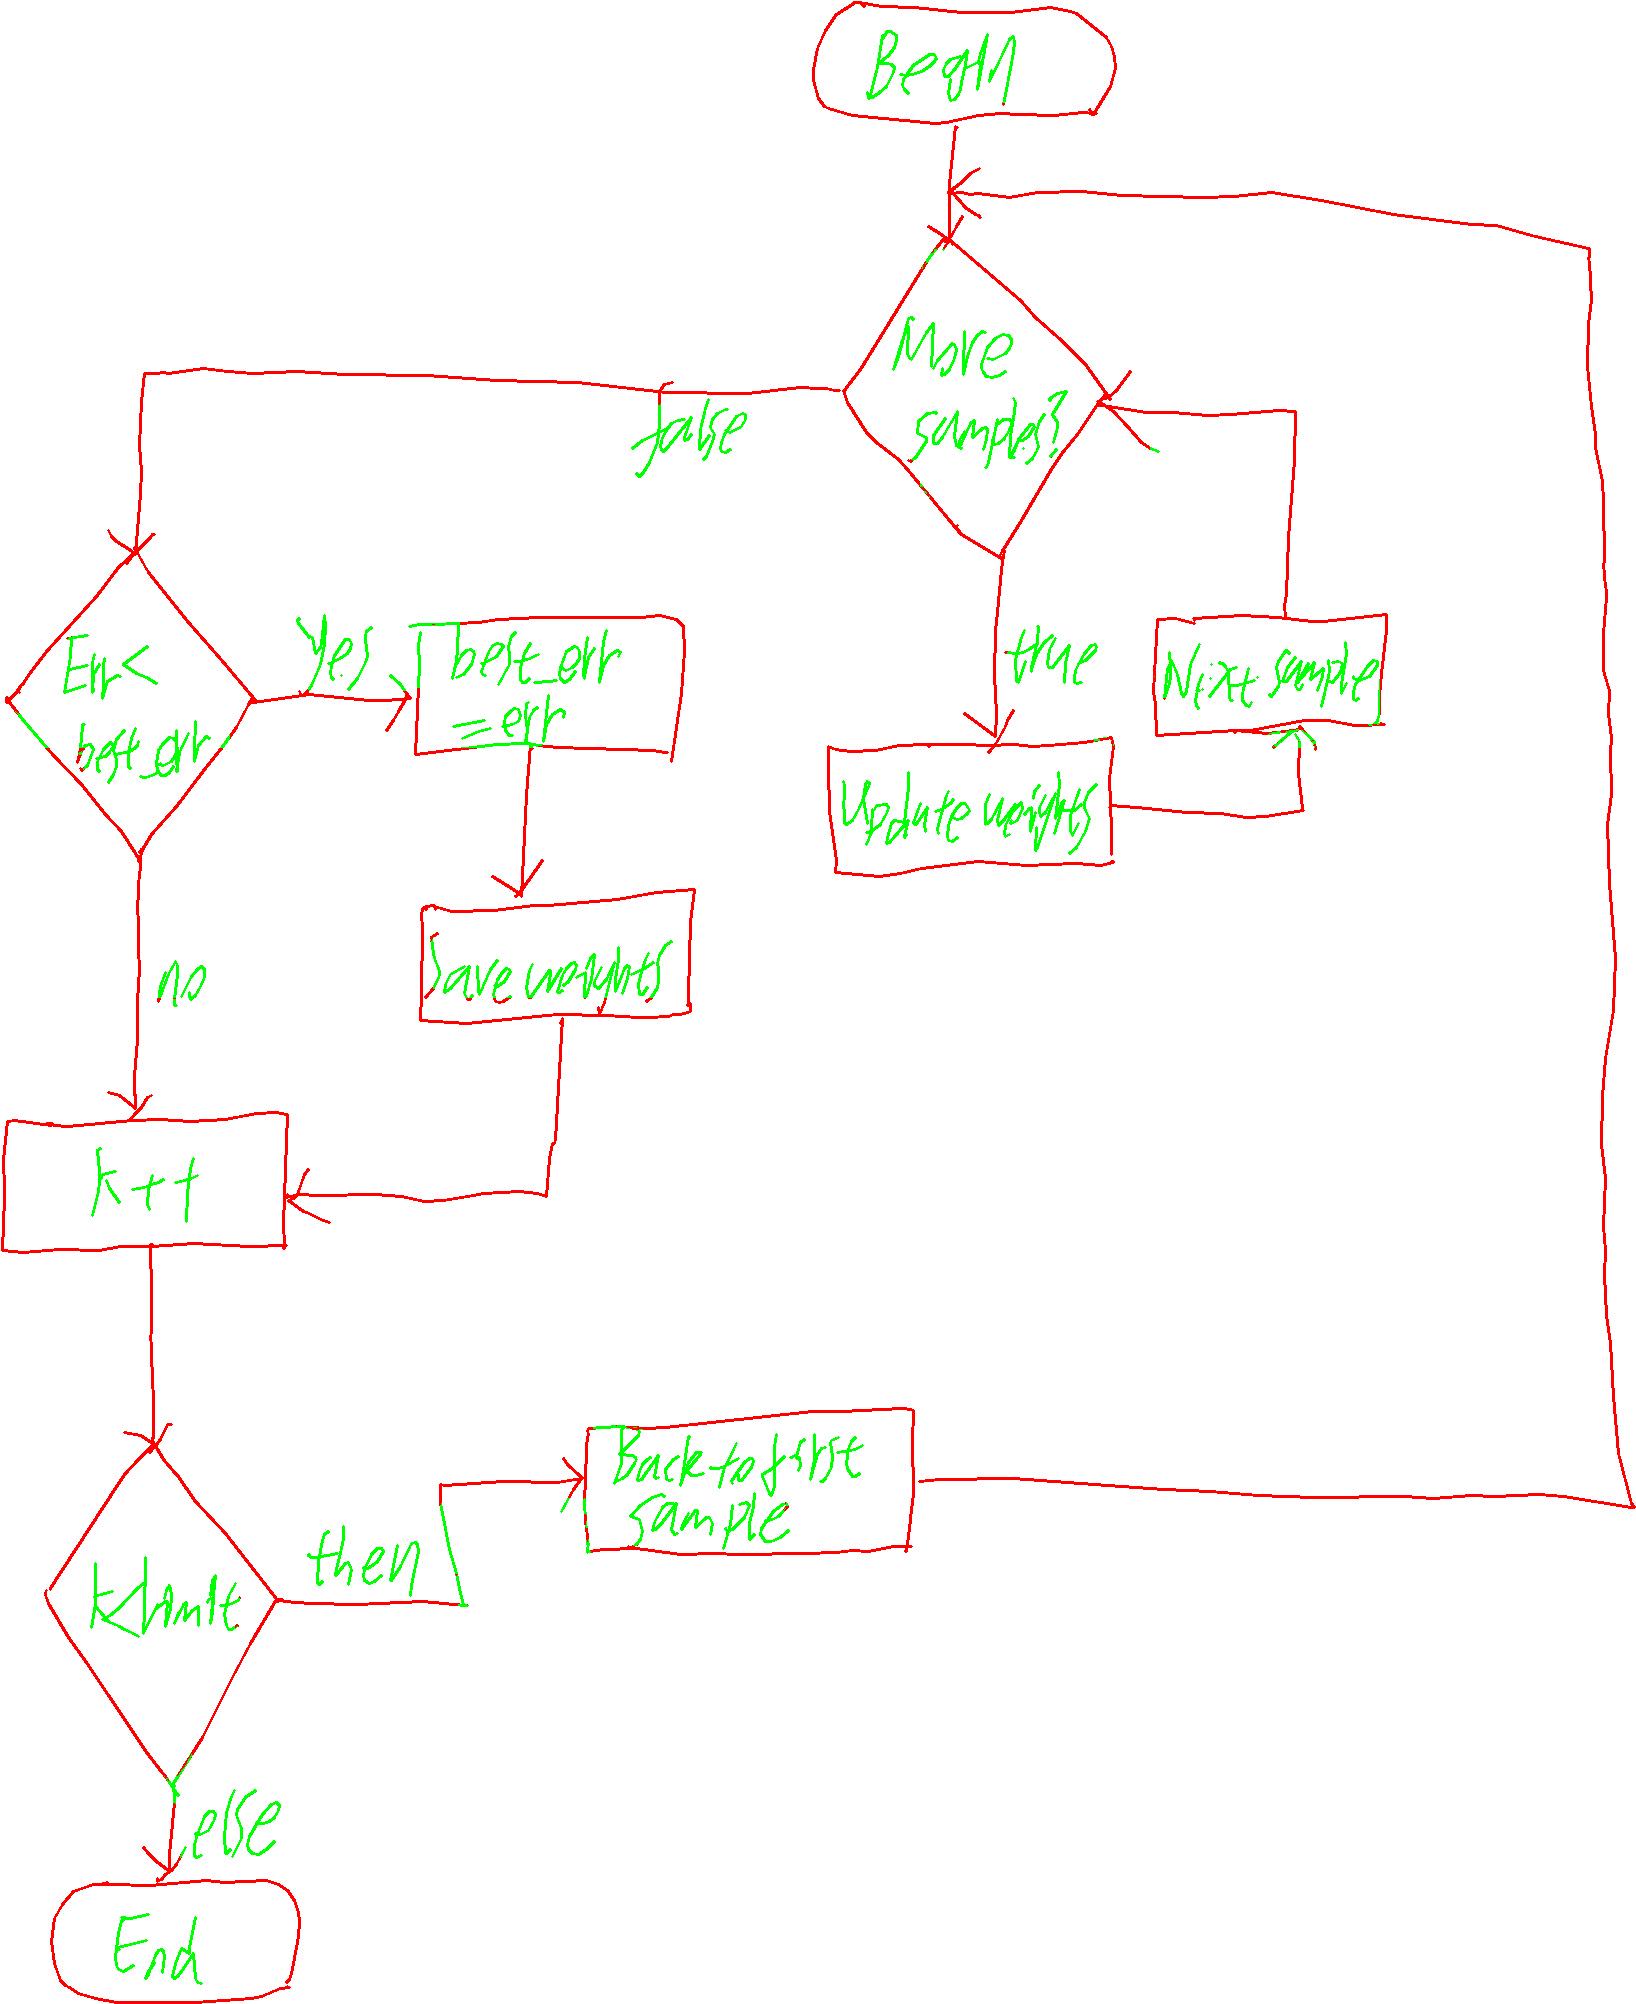 Begin
More
samples?
false
true
Next sample
Update weights
Err<
best_err
Yes
best_err
=err
Save weights
no
k++
Back to first
sample
then
k<limit
else
End